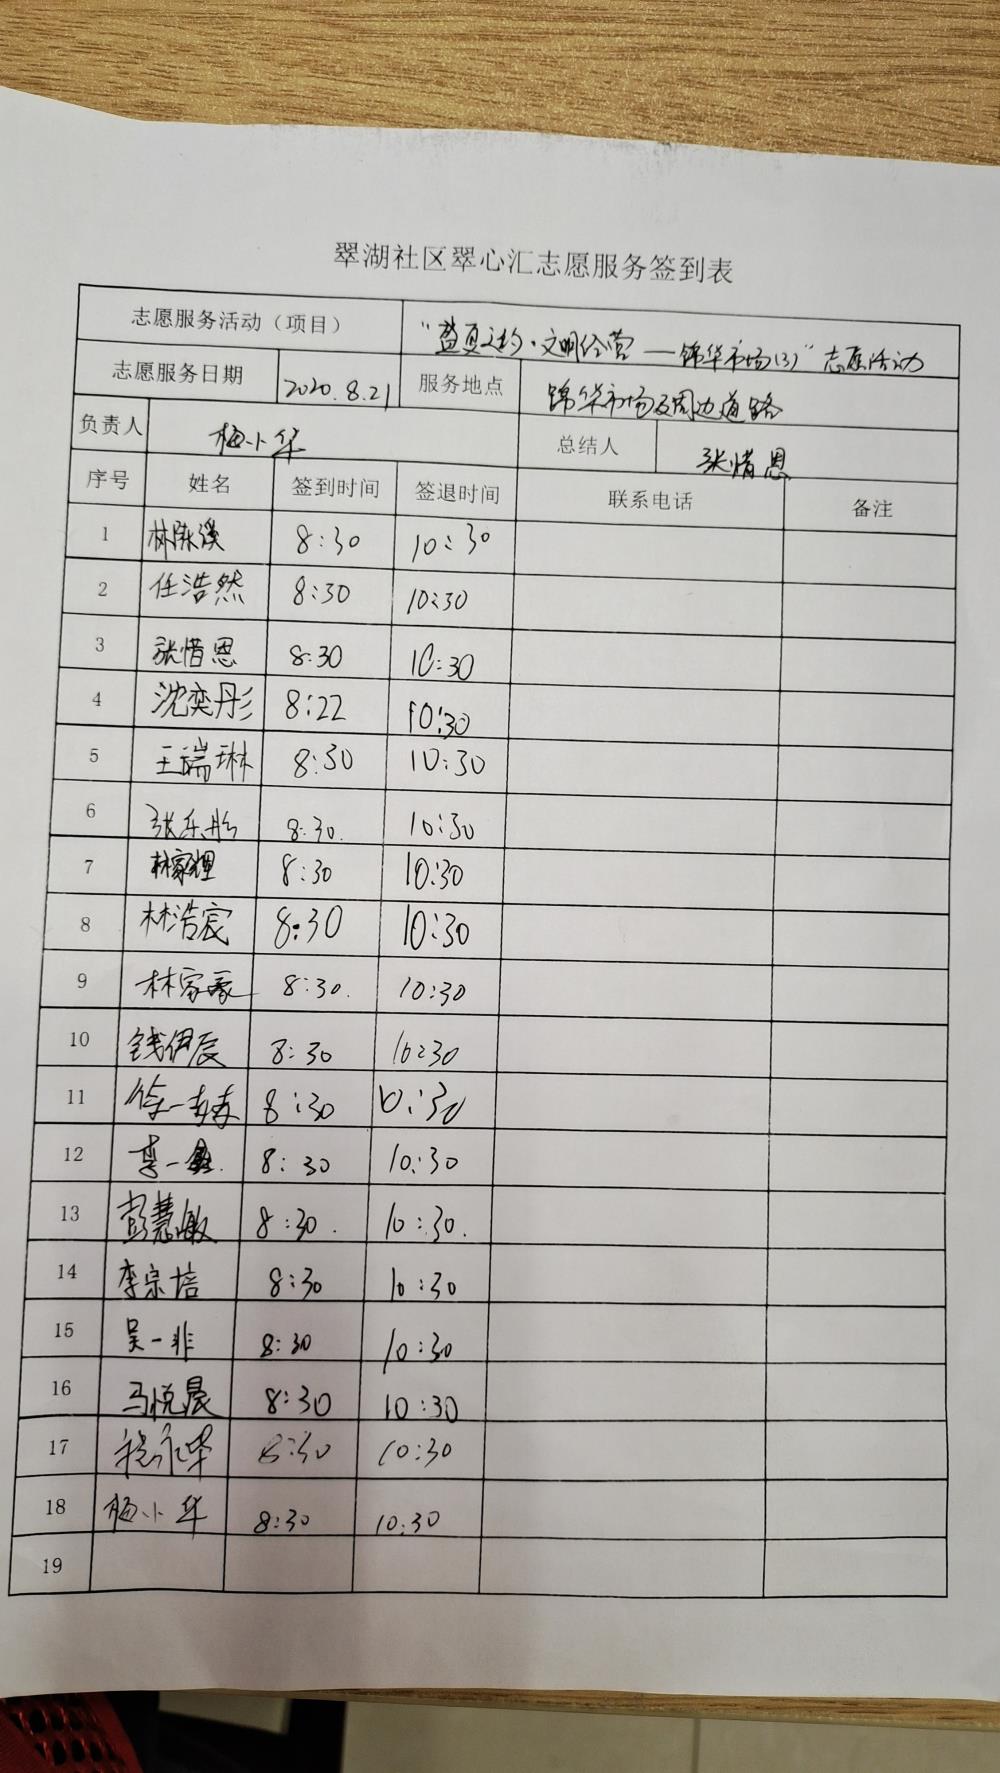 翠湖社区翠心汇志愿服务签到表
志愿服务活动（项目） “盛夏之约·文明经营——锦华市场(3)”志愿活动
志愿服务日期 2020.8.21 服务地点 锦华市场及周边道路
负责人 梅小华 总结人 张惜恩
序号 姓名 签到时间 签退时间 联系电话 备注
1 8:30 10:30
2 任浩然 8:30 10:30
3 张惜恩 8:30 10:30
4 沈奕彤 8:22 10:30
5 王瑞琳 8:30 10:30
6 张乐彤 8:30. 10:30
7 林家耀 8:30 10:30
8 林浩宸 8:30 10:30
9 林家豪 8:30. 10:30
10 钱伊辰 8:30 10:30
11 徐一 8:30 10:30
12 李一 8:30 10:30
13 彭慧敏 8:30. 10:30.
14 李宗信 8:30 10:30
15 吴一非 8:30 10:30
16 马悦晨 8:30 10:30
17 8:30 10:30
18 梅小华 8:30 10:30
19